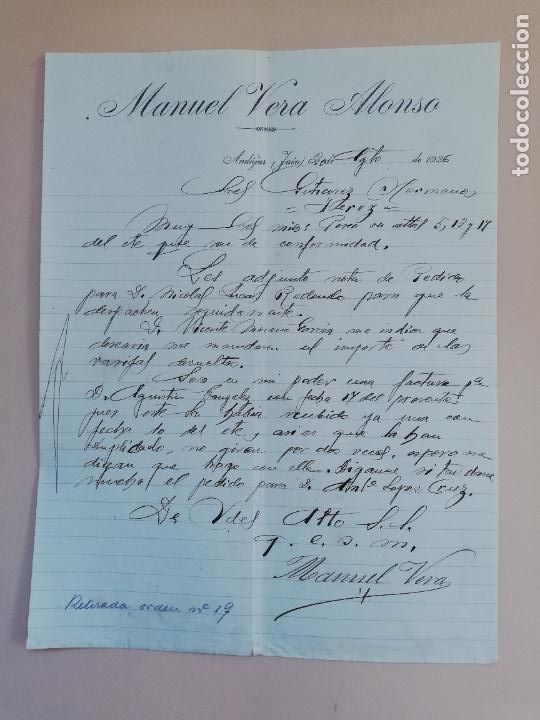 Manuel Vera Alonso
Andújar, (Jaén) 20 de Agto de 1926
Sres Gutierrez Hermanos
= Jerez =
Muy Sres mios: Poseo su 5, 13 y 17
del cte que son de conformidad.
Les adjunto nota de Pedido
para D. Nicolas Lucas Redondo para que la
despachen seguidamente.
D. Vicente Moreno Garcia me indica que
desearia me mandaran el importe de las
vasijas devueltas.
Obra en mi poder una factura pa
D. Agustin Gonzalez con fecha 17 del presente
pues este Sr habia recibido ya una con
fecha 10 del cte, asi es que la han
duplicado, no giren por dos veces, espero me
digan que hago con ella. Diganme si tardara
mucho el pedido para D. Anto Lopez Cruz.
De Vdes Atto S.S.
q. e. s. m.
Manuel Vera
Retirada orden nº 19
todocoleccion.net